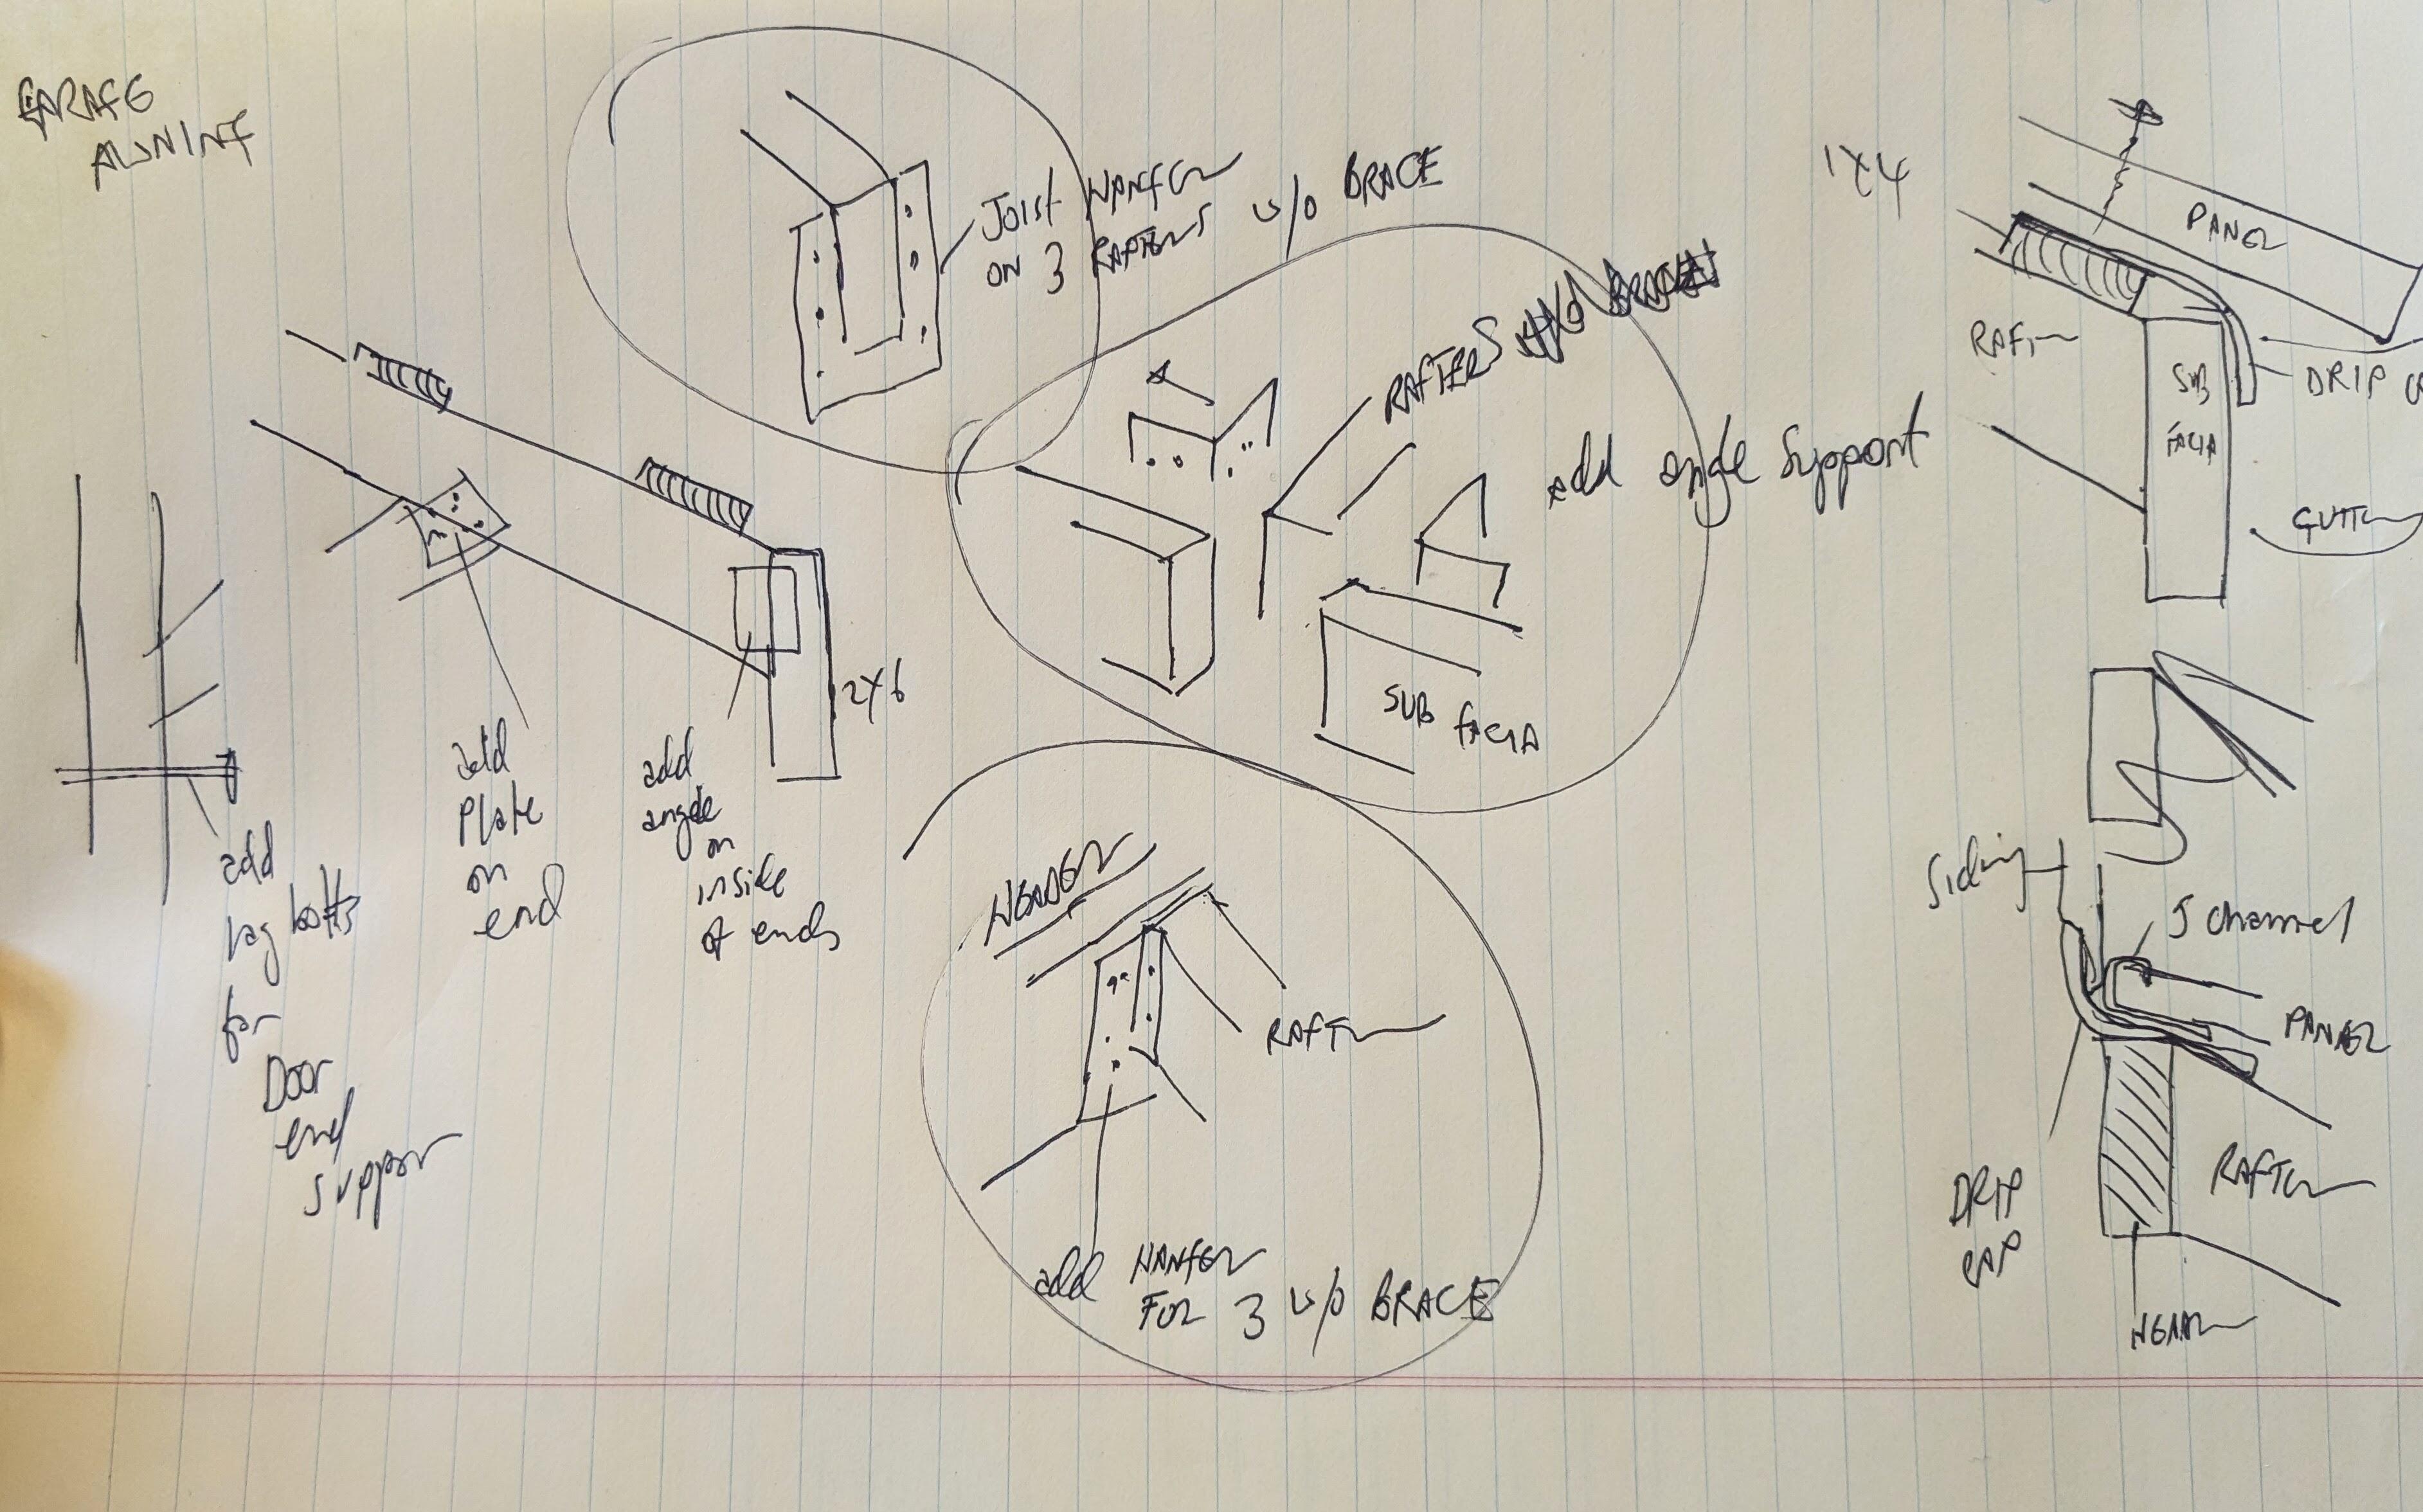 GARAGE
AWNING
JOIST HANGER
ON 3 RAFTERS w/o BRACE
RAFTERS
add angle support
SUB
FACIA
2X6
add
Plate
on
end
add
angle
on
inside
of ends
add
lag bolts
for
Door
end
support
HEADER
RAFTER
add HANGER
FOR 3 w/o BRACE
1X4
PANEL
RAFTER
SUB
FACIA
DRIP
GUTTER
Siding
J channel
PANEL
DRIP
CAP
RAFTER
HEADER